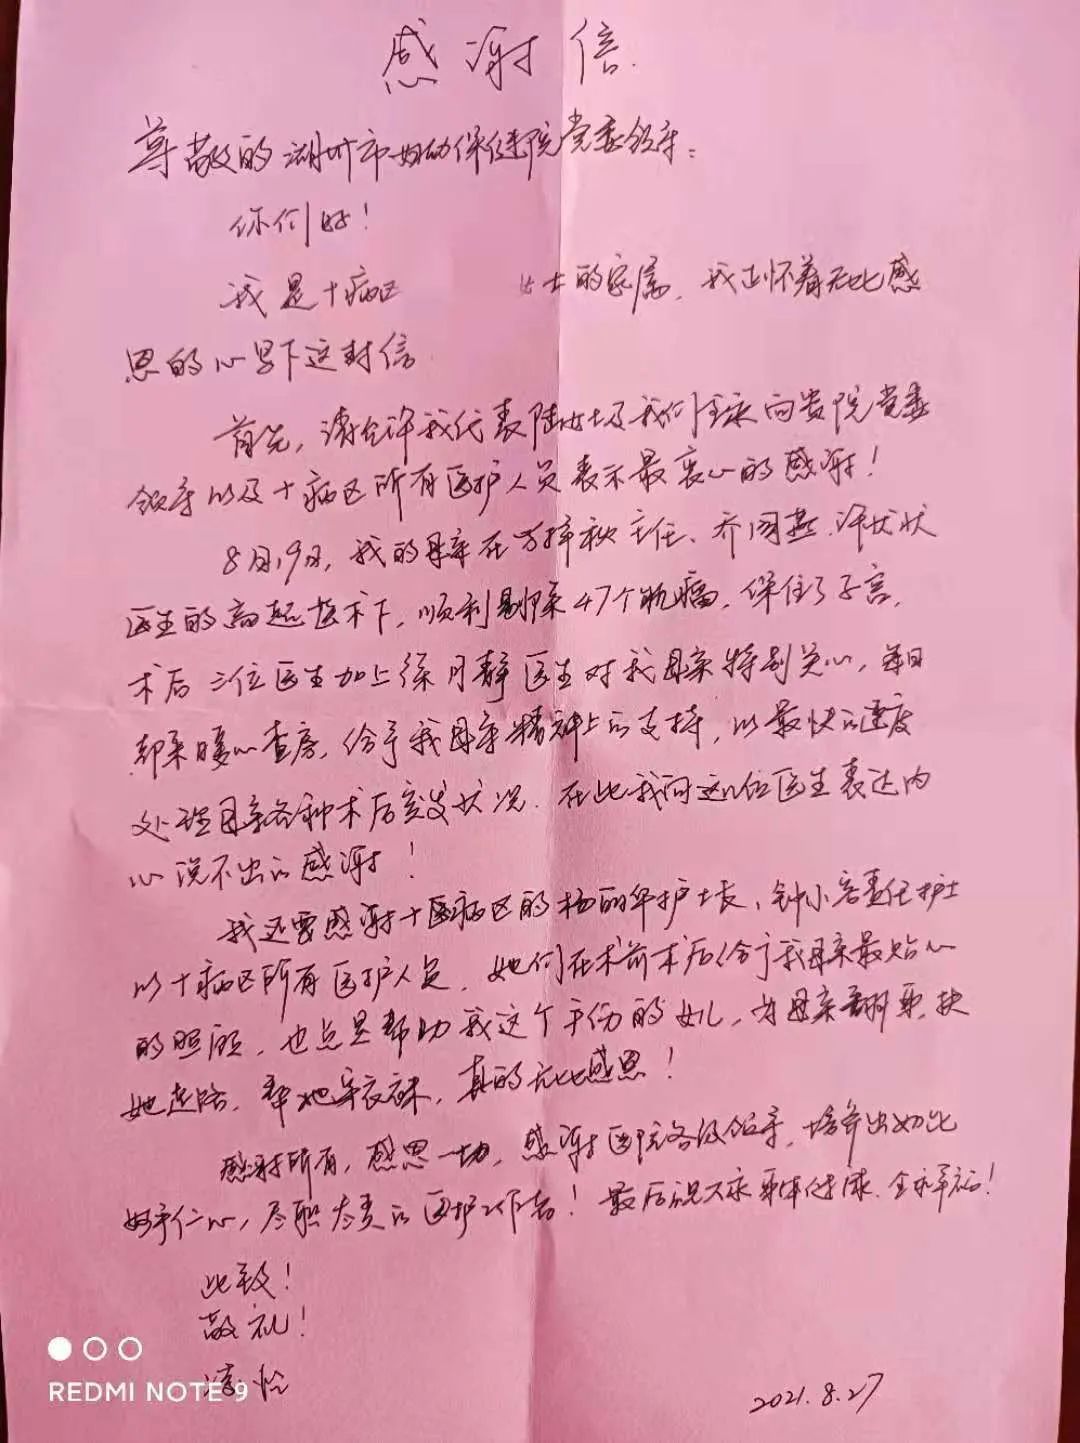 感谢信
尊敬的湖州市妇幼保健院党委领导:
你们好!
我是十病区 女士的家属,我正怀着无比感
恩的心写下这封信
首先,请允许我代表陆女士及我们全家向贵院党委
领导以及十病区所有医护人员表示最衷心的感谢!
8月19日,我的母亲在 主任、乔闰燕、
医生的高超技术下,顺利剔除47个肌瘤,保住了子宫,
术后三位医生加上徐月静医生对我母亲特别关心,每日
都来暖心查房,给予我母亲精神上的支持,以最快的速度
处理母亲各种术后突发状况.在此我向这几位医生表达内
心说不出的感谢!
我还要感谢十病区的杨丽华护士长、钟小 责任护士
以十病区所有医护人员,她们在术前术后给予我母亲最贴心
的照顾,也总是帮助我这个手伤的女儿,为母亲翻身,扶
她走路,帮她穿衣袜,真的无比感恩!
感谢所有,感恩一切,感谢医院各级领导,培养出如此
妙手仁心,尽职尽责的医护工作者!最后祝大家身体健康.全家幸福!
此致!
敬礼!
2021.8.27
REDMI NOTE 9